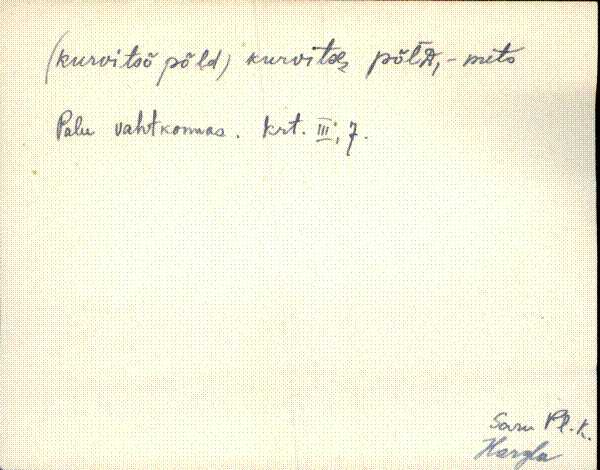 (kurvitsõ põld) kurvitsɛ põlD, - mets
Palu vahtkonnas. krt. III, 7.
Saru Pl. K.
Hargla